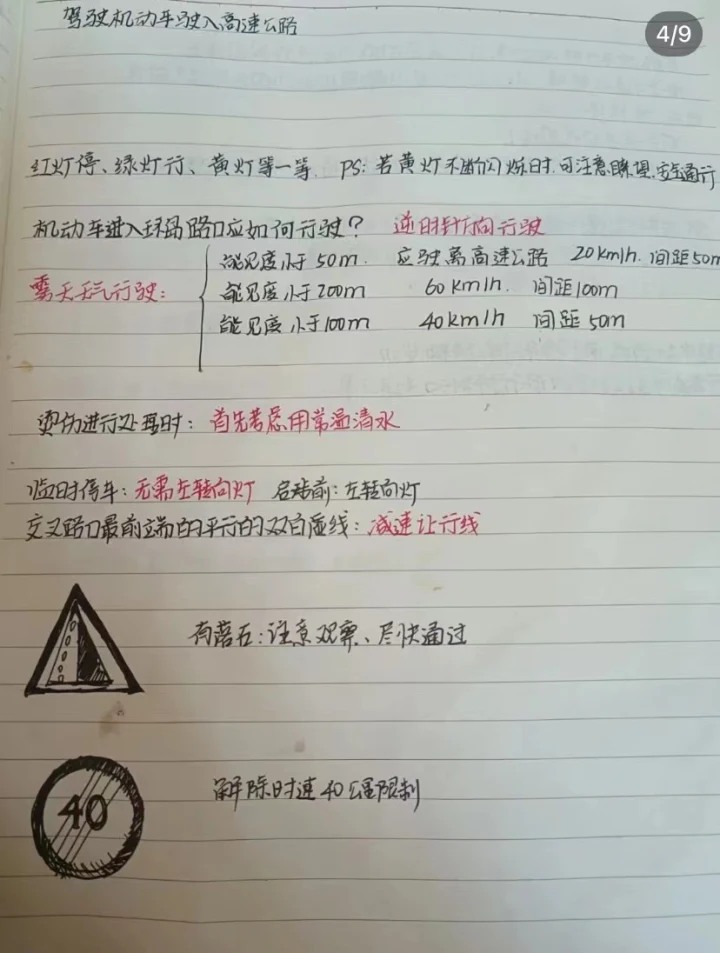 驾驶机动车驶入高速公路
4/9
红灯停、绿灯行、黄灯等一等. PS: 若黄灯不断闪烁时.可注意瞭望.安全通行
机动车进入环岛路口应如何行驶? 逆时针方向行驶
雾天天气行驶:
能见度小于50m. 应驶离高速公路 20km/h. 间距50m
能见度小于200m 60km/h. 间距100m
能见度小于100m 40km/h 间距50m
烫伤进行处理时: 首先考虑用常温清水
临时停车: 无需左转向灯 启动前: 左转向灯
交叉路口最前端的平行的双白虚线: 减速让行线
有落石: 注意观察、尽快通过
40
解除时速40公里限制